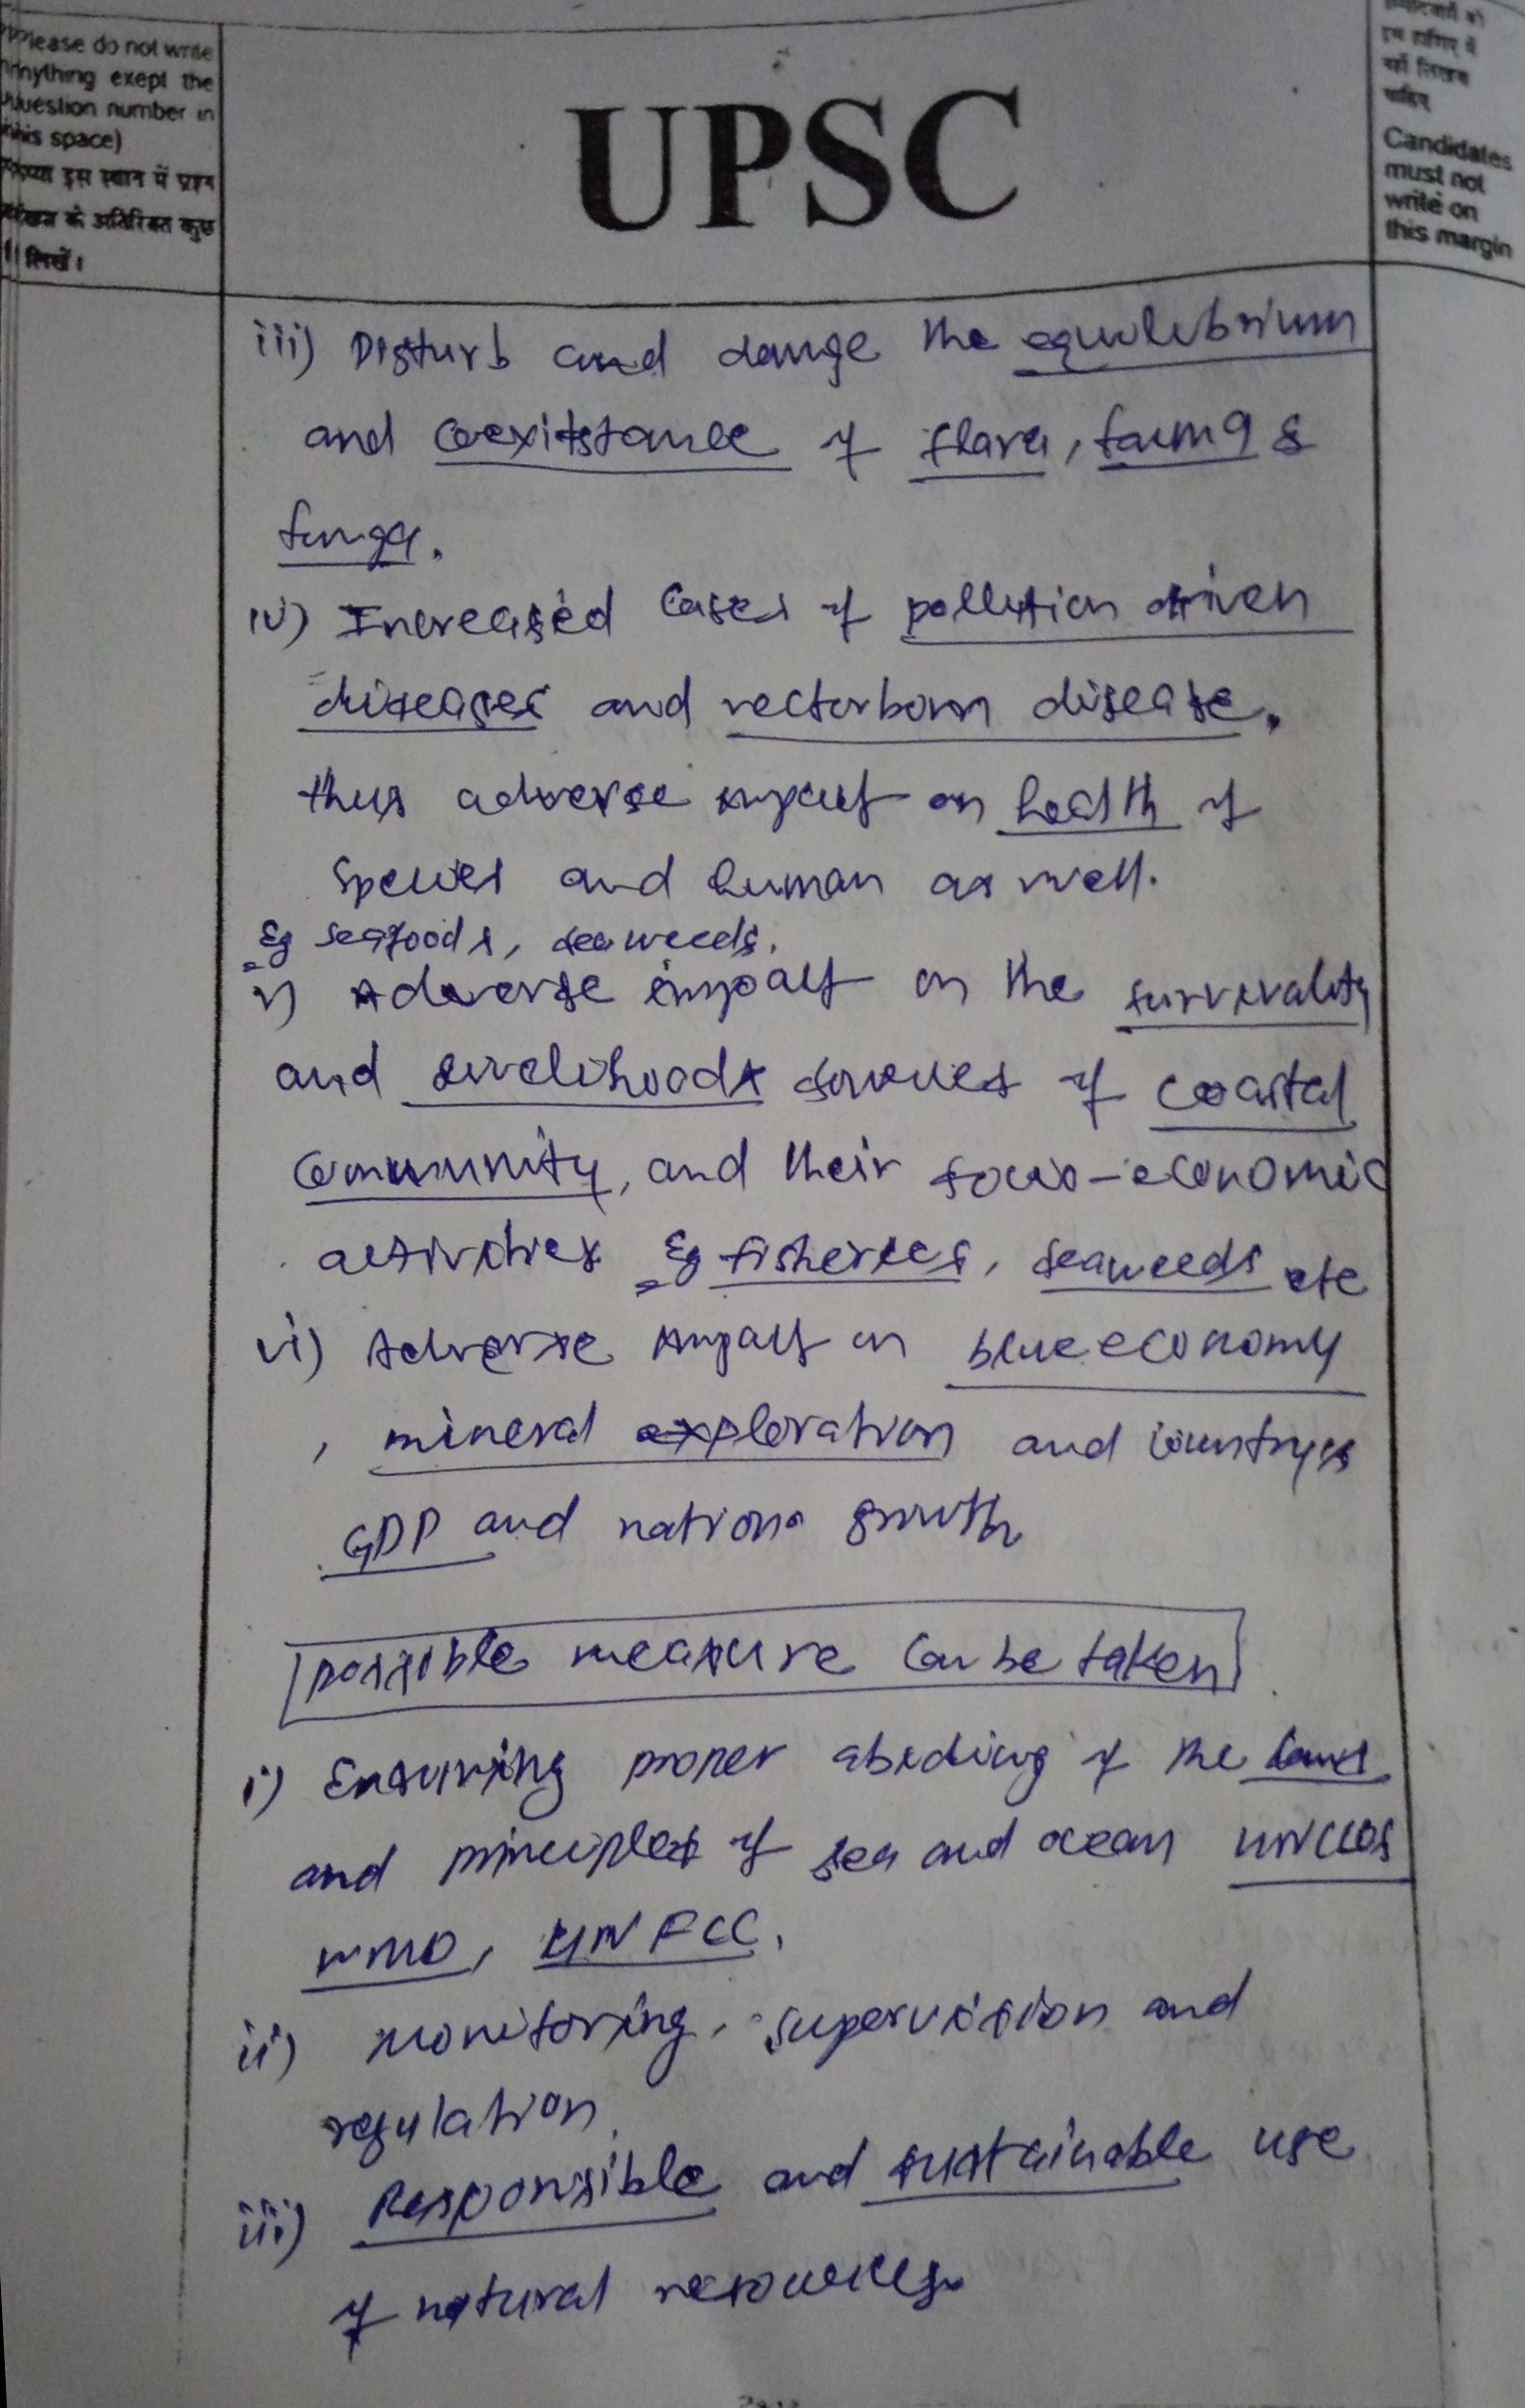 Please do not write
anything exept the
question number in
this space)
इस स्थान में प्रश्न
के अतिरिक्त कुछ
लिखें।
UPSC
उम्मीदवारों को
इस हाशिए में
नहीं लिखना
चाहिए
Candidates
must not
write on
this margin
iii) Disturb and damge the equilibrium
and coexitstance of flora, fauna &
funga.
iv) Increased cases of pollution driven
diseases and vectorborn disease.
thus adverse impact on health of
species and human as well.
Eg seafoods, seaweeds.
v) Adverse impact on the survivality
and livelihoods sources of coastal
community, and their socio-economic
activities Eg fisheries, seaweeds etc
vi) Adverse impact on blue economy
, mineral exploration and countrys
GDP and nation growth
possible measure can be taken
i) Ensuring proper abiding of the laws
and principles of sea and ocean UNCLOS
WMO, UNFCC.
ii) Monitoring, supervision and
regulation.
iii) Responsible and sustainable use
of natural resources.